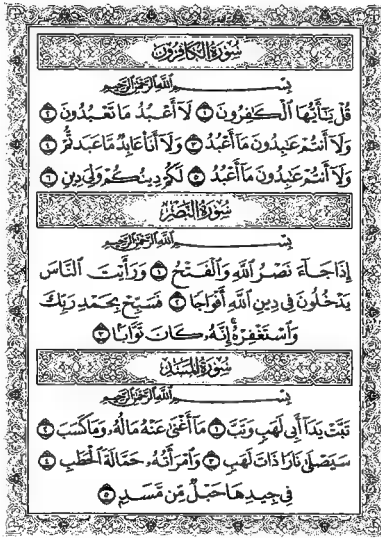 سُورَةُ الْكَافِرُونَ
بِسْمِ اللَّهِ الرَّحْمَٰنِ الرَّحِيمِ
قُلْ يَٰٓأَيُّهَا الْكَٰفِرُونَ ١ لَآ أَعْبُدُ مَا تَعْبُدُونَ ٢
وَلَآ أَنتُمْ عَٰبِدُونَ مَآ أَعْبُدُ ٣ وَلَآ أَنَا۠ عَابِدٌ مَّا عَبَدتُّمْ ٤
وَلَآ أَنتُمْ عَٰبِدُونَ مَآ أَعْبُدُ ٥ لَكُمْ دِينُكُمْ وَلِيَ دِينِ ٦
سُورَةُ النَّصْرِ
بِسْمِ اللَّهِ الرَّحْمَٰنِ الرَّحِيمِ
إِذَا جَآءَ نَصْرُ اللَّهِ وَالْفَتْحُ ١ وَرَأَيْتَ النَّاسَ
يَدْخُلُونَ فِي دِينِ اللَّهِ أَفْوَاجًا ٢ فَسَبِّحْ بِحَمْدِ رَبِّكَ
وَاسْتَغْفِرْهُ ۚ إِنَّهُۥ كَانَ تَوَّابًۢا ٣
سُورَةُ الْمَسَدِ
بِسْمِ اللَّهِ الرَّحْمَٰنِ الرَّحِيمِ
تَبَّتْ يَدَآ أَبِي لَهَبٍ وَتَبَّ ١ مَآ أَغْنَىٰ عَنْهُ مَالُهُۥ وَمَا كَسَبَ ٢
سَيَصْلَىٰ نَارًا ذَاتَ لَهَبٍ ٣ وَامْرَأَتُهُۥ حَمَّالَةَ الْحَطَبِ ٤
فِي جِيدِهَا حَبْلٌ مِّن مَّسَدٍۭ ٥